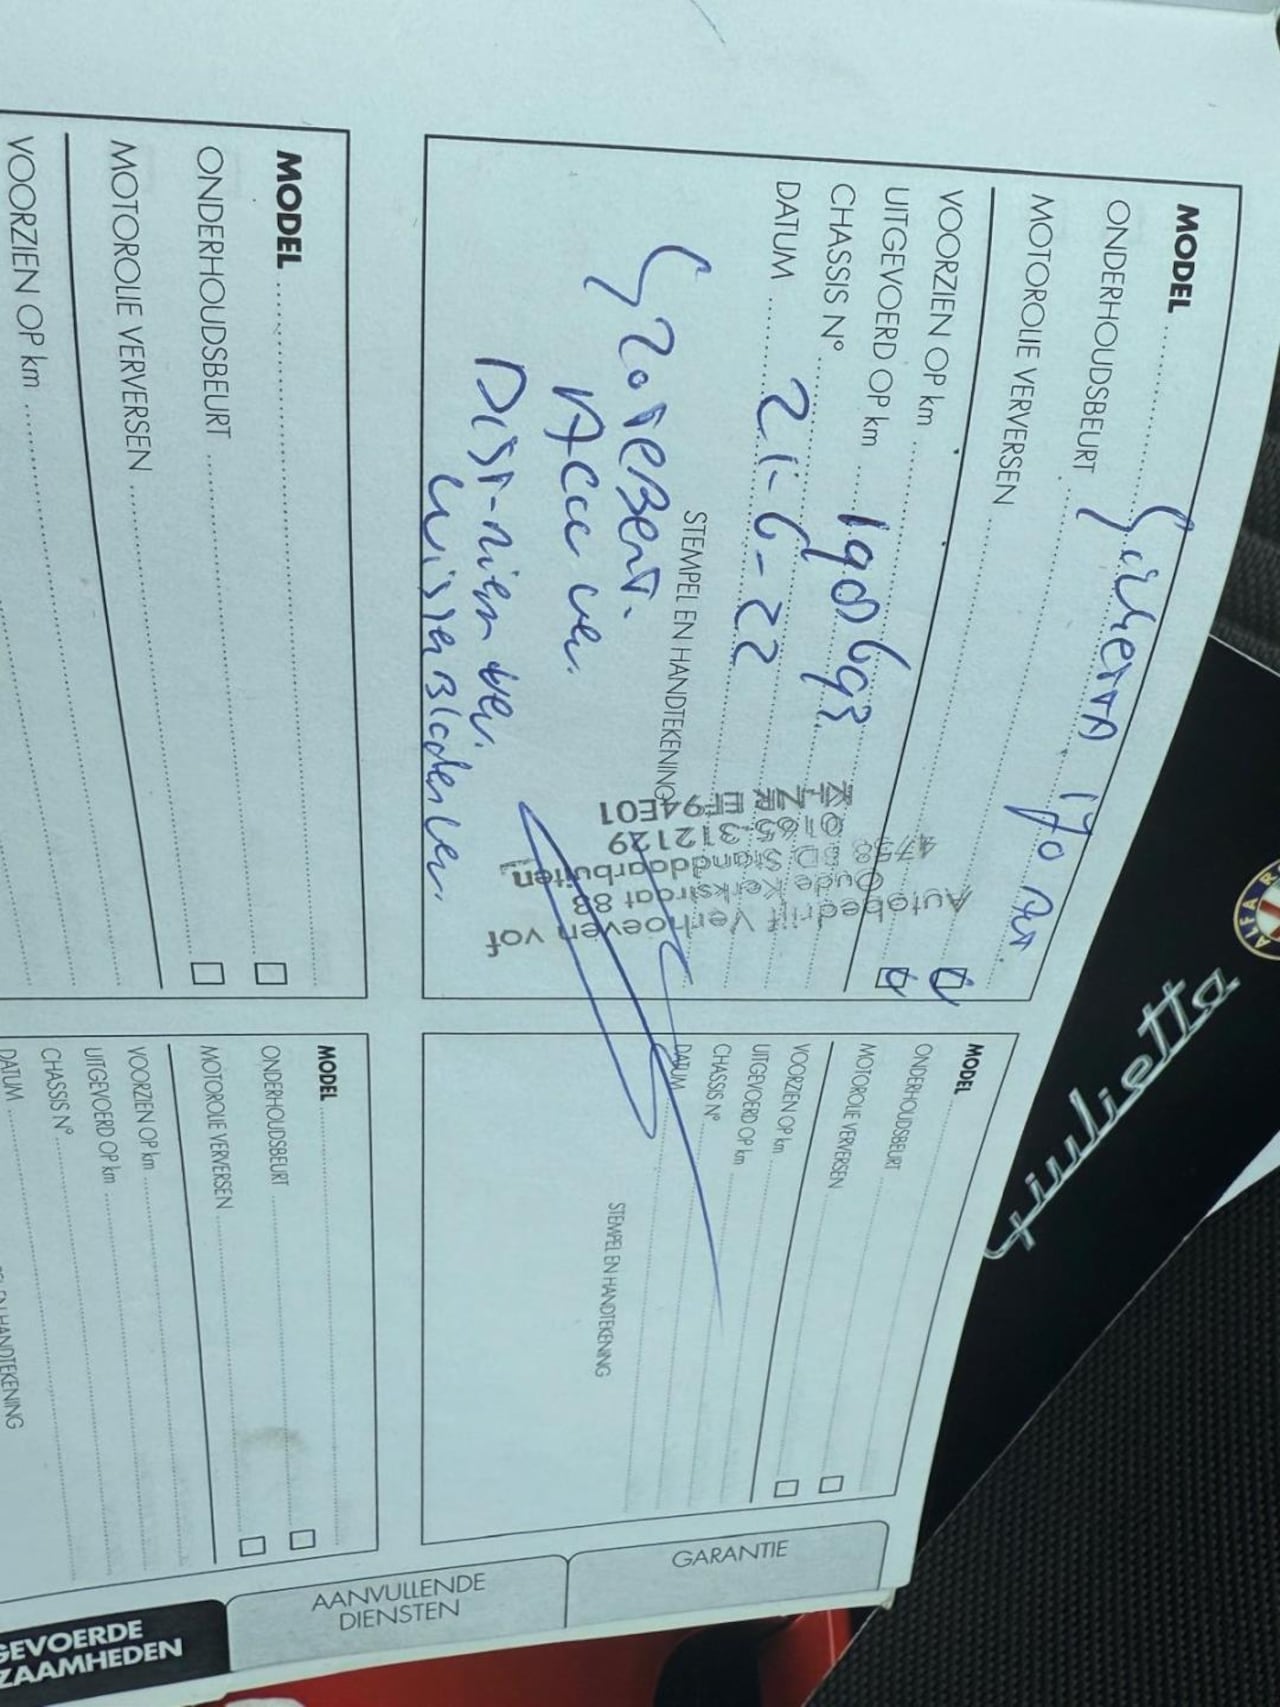 MODEL Giulietta 170 pk
ONDERHOUDSBEURT
MOTOROLIE VERVERSEN
VOORZIEN OP km
UITGEVOERD OP km 190869?
CHASSIS N°
DATUM 21-6-22
STEMPEL EN HANDTEKENING
Grotebeurt.
Accu ver.
Distr-riem ver.
wisserbladen ver.
Autobedrijf Verhoeven vof
Oude Kerkstraat 8
4758 BD Standdaarbuiten
0165-312129
EF94E01
MODEL
ONDERHOUDSBEURT
MOTOROLIE VERVERSEN
VOORZIEN OP km
UITGEVOERD OP km
CHASSIS N°
DATUM
STEMPEL EN HANDTEKENING
MODEL
ONDERHOUDSBEURT
MOTOROLIE VERVERSEN
VOORZIEN OP km
MODEL
ONDERHOUDSBEURT
MOTOROLIE VERVERSEN
VOORZIEN OP km
UITGEVOERD OP km
CHASSIS N°
DATUM
EN HANDTEKENING
GARANTIE
AANVULLENDE
DIENSTEN
GEVOERDE
ZAAMHEDEN
Giulietta
ALFA R